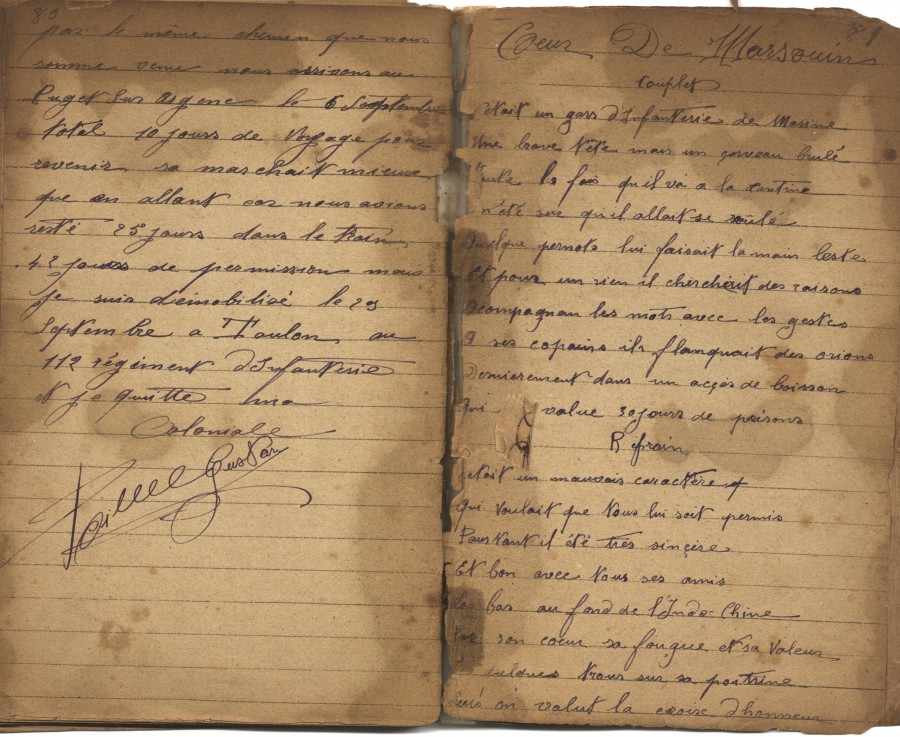 80
par le même chemin que nous
somme venu nous arrivons au
Puget Sur Argens le 6 Septembre
total 10 jours de voyage pour
revenir sa marchait mieux
que en allant car nous avions
resté 25 jours dans le train
42 jours de permission mais
je suis démobilisé le 29
Septembre a Toulon au
112 régiment d'Infanterie
et je quitte ma
Coloniale
Gustav
81
Coeur De Marsouin
Couplet
cétait un gars d'Infanterie de Marine
Une brave tête mais un cerveau brulé
toute la fois qu'il va a la cantine
n'été sur qu'il allait se roulé
Quelque pernots lui faisait la main leste
Et pour un rien il cherchérit des raisons
acompagnan les mots avec les gestes
A ses copains ils flanquait des orions
Dernierement dans un accés de boisson
qui value 30 jours de prisons
Refrain
cétait un mauvais caractère
qui voulait que tous lui soit permis
Pourtant il été très sinçère
Et bon avec tous ses amis
La bas au fond de l'Indo-Chine
par son coeur sa fougue et sa valeur
quelques trous sur sa poitrine
valut la croix d'honneur